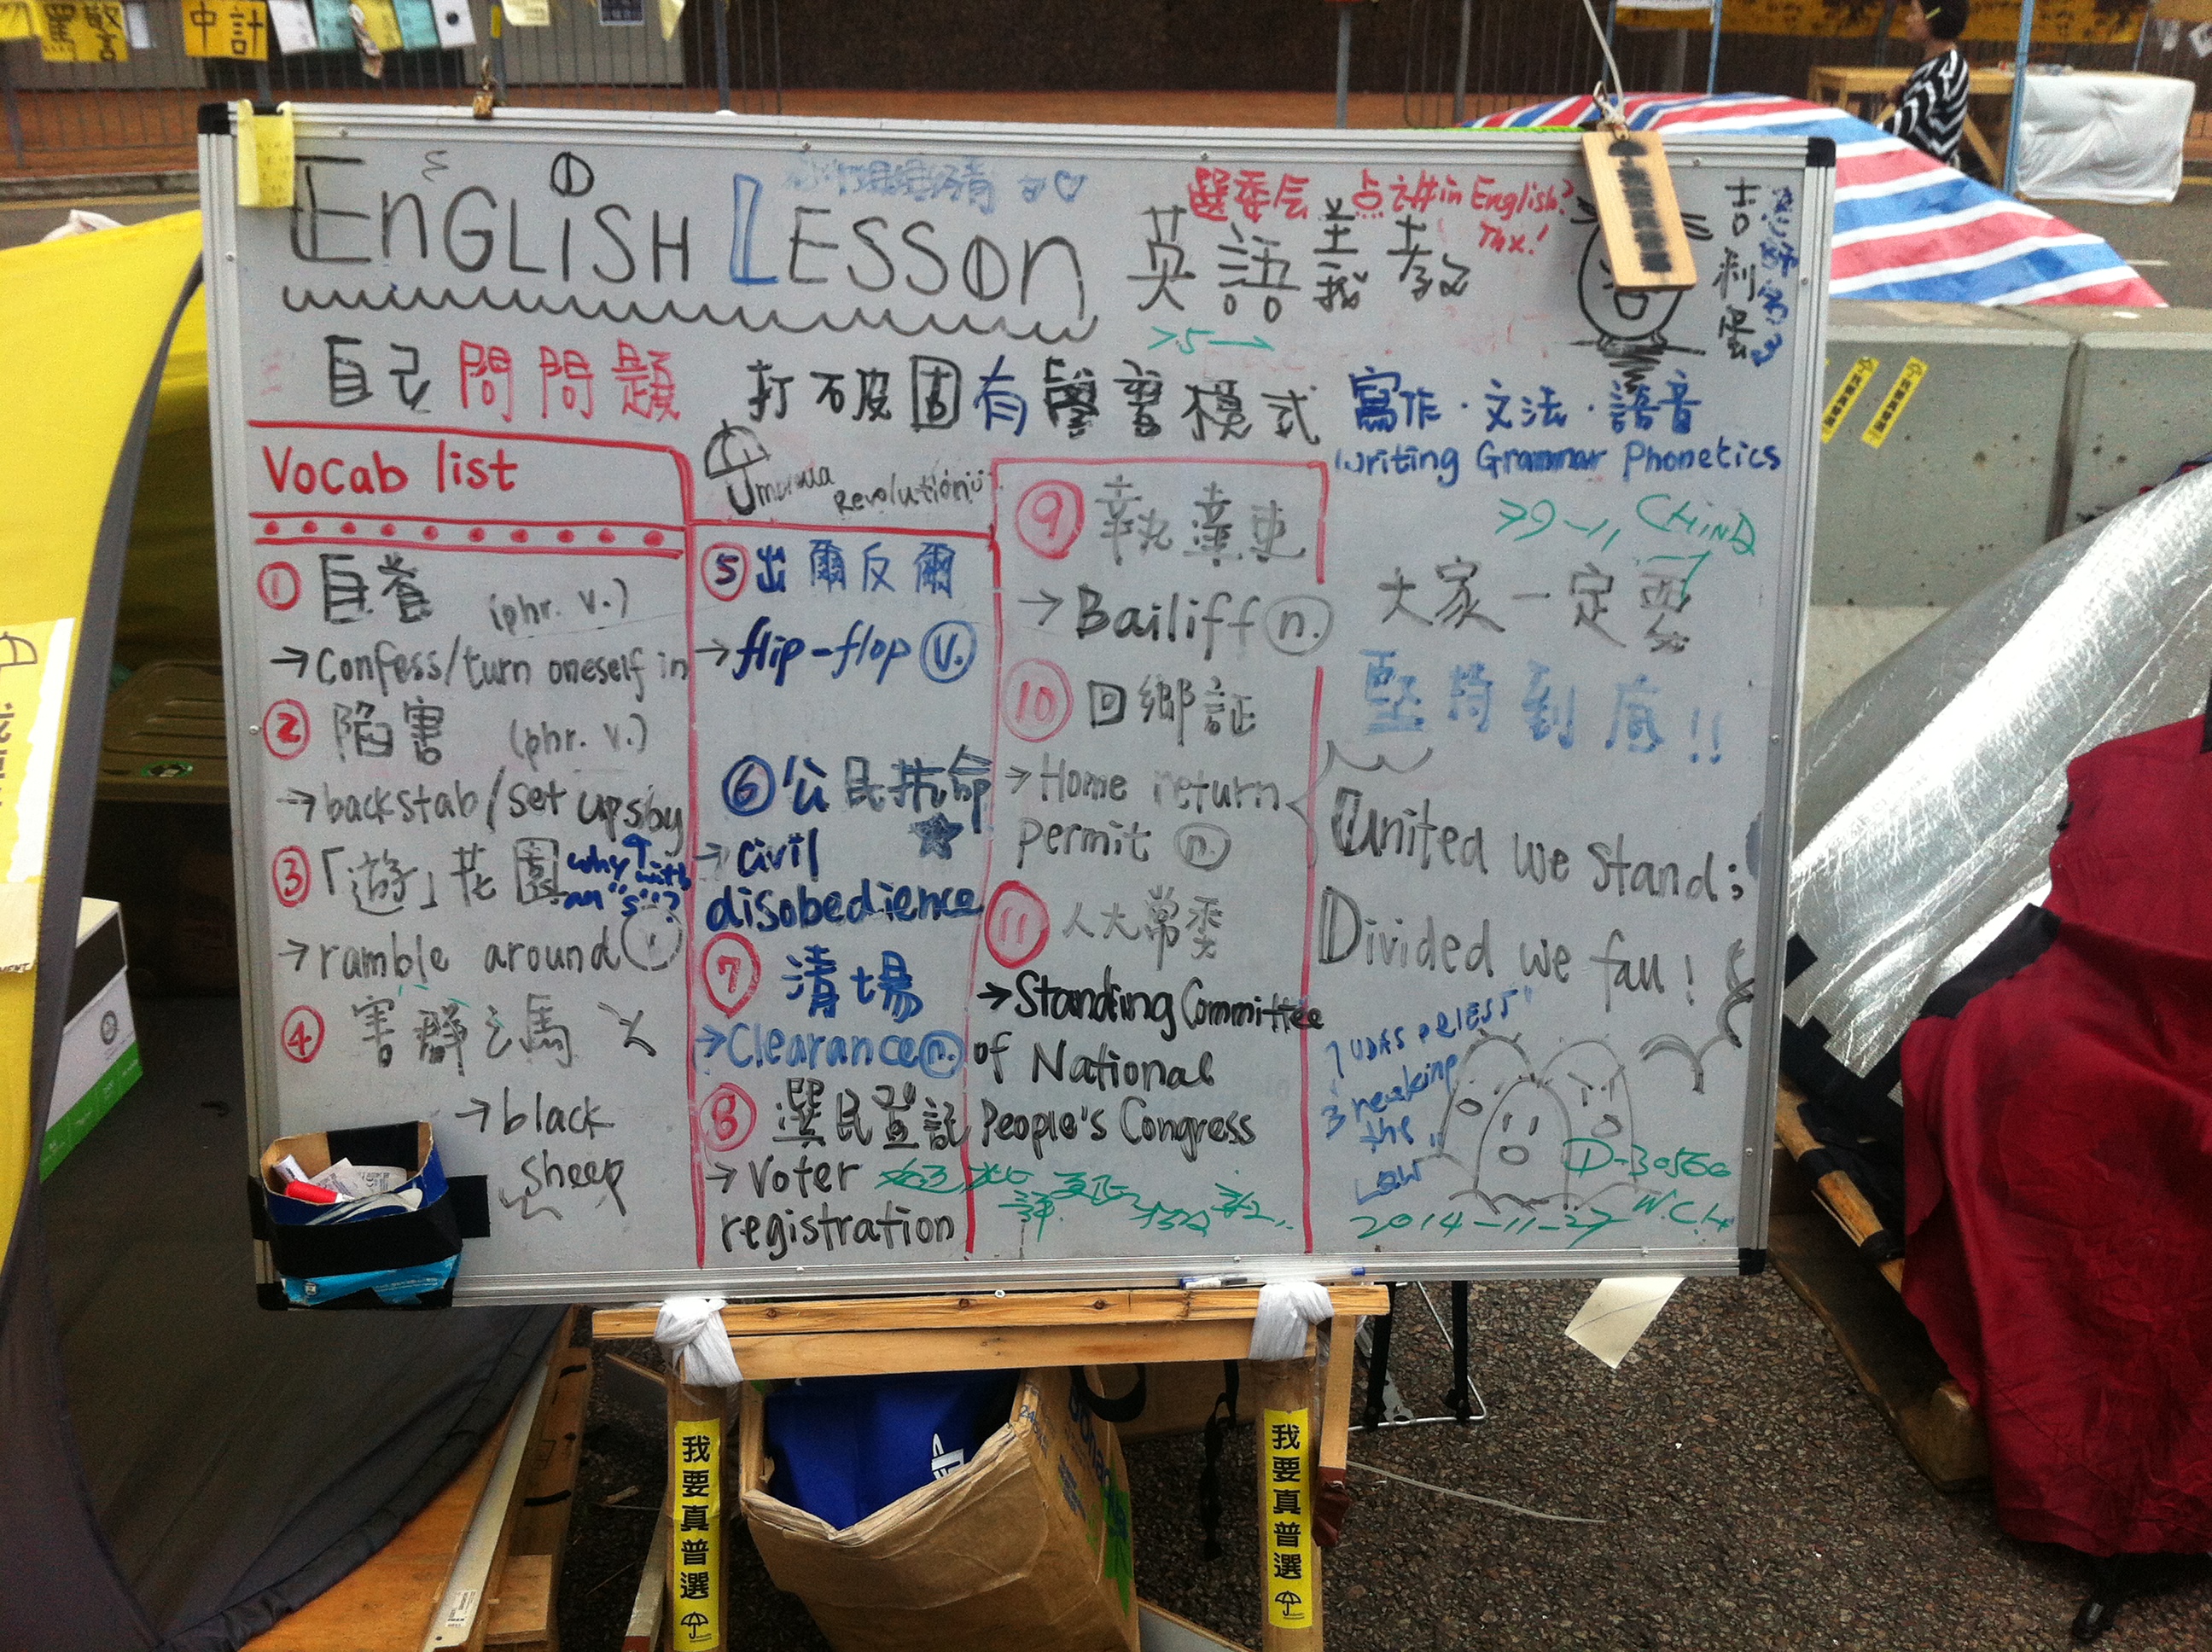 罵警
中計
ENGLISH LESSON 英語義教
選委会点講in English?
Thx!
自己問問題 打破固有學習模式
寫作·文法·語音
Writing Grammar Phonetics
Vocab list
Umbrella Revolution
① 自首 (phr. v.)
→ Confess/turn oneself in
② 陷害 (phr. v.)
→ backstab/set up sby
③ 「遊」花園
why with an "s"?
→ ramble around v.
④ 害群之馬
→ black
sheep
⑤ 出爾反爾
→ flip-flop v.
⑥ 公民抗命
→ civil
disobedience
⑦ 清場
→ Clearance n.
⑧ 選民登記
→ Voter
registration
⑨ 執達吏
→ Bailiff n.
⑩ 回鄉証
→ Home return
permit n.
⑪ 人大常委
→ Standing Committee
of National
People's Congress
CHINA
大家一定要
堅持到底!!
United we stand;
Divided we fall!
the
Law
D-30566
W.C.H
2014-11-27
我要真普選
我要真普選